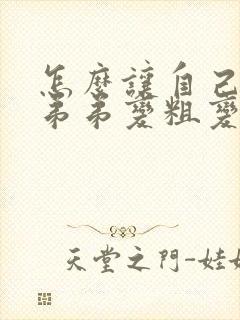 怎麼讓自己
弟弟變粗變
天堂之門-娃娃